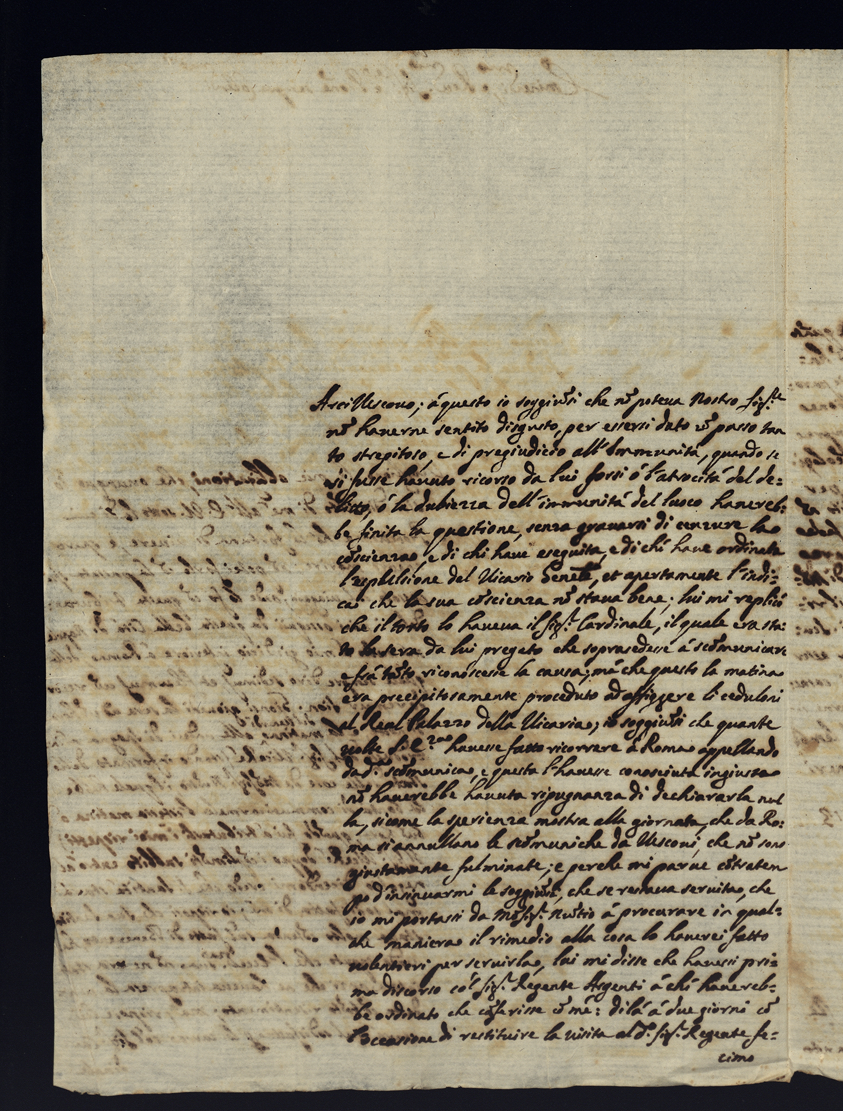 Arcivescovo; á questo io soggiũsi che nõ poteva Nostro Sig.re
nõ haverne sentito disgusto, per essersi dato ũ passo tan
to strepitoso, e di pregiudicio all'Immunitá, quando se
si fusse havuto ricorso da lui forsi ó l'atrocitá del de-
litto, ó la dubiezza dell'immunitá del luoco havereb-
be finita la questione, senza gravarsi di cenzure la
cõscienza, e di chi have eseguita, e di chi have ordinata
l'espulsione del Vicario Gen̄ale, et apertamente l'indi-
cai che la sua cõscienza nõ stava bene; lui mi replicó
che il torto lo haveva il Sig.r Cardinale, il quale era sta-
to la sera da lui pregato che soprasedere á scõmunicare
e frá tãto riconoscesse la causa; má che questo la matina
era precipitosamente proceduto ad affiggere li cedoloni
al Real Palazzo della Vicaria; io soggiũsi che quante
volte S. E.za havesse fatto ricorrere á Roma appellando
da d.a scõmunica, e questa l'havesse conosciuta ingiusta
nõ haverebbe havuta ripugnanza di dechiararla nul
la, sicome la sperienza mostra alla giornata, che da Ro-
ma si annullano le scõmuniche da Vescovi, che nõ sono
giustamente fulminate; e perche mi parve cõtratem
po d'insinuarmi le soggiũsi, che se restava servita, che
io mi portassi da Mõsig.r Nũtio á procurare in qual-
che maniera il rimedio alla cosa lo haverei fatto
volentieri per servirla, lui mi disse che havessi pri-
ma discorso co'l Sig.r Regente Argenti á chi havereb-
be ordinato che cõferisse cõ mé: di lá á due giorni cõ
l'occasione di restituire la visita al d.o Sig.r Regente fe-
cimo